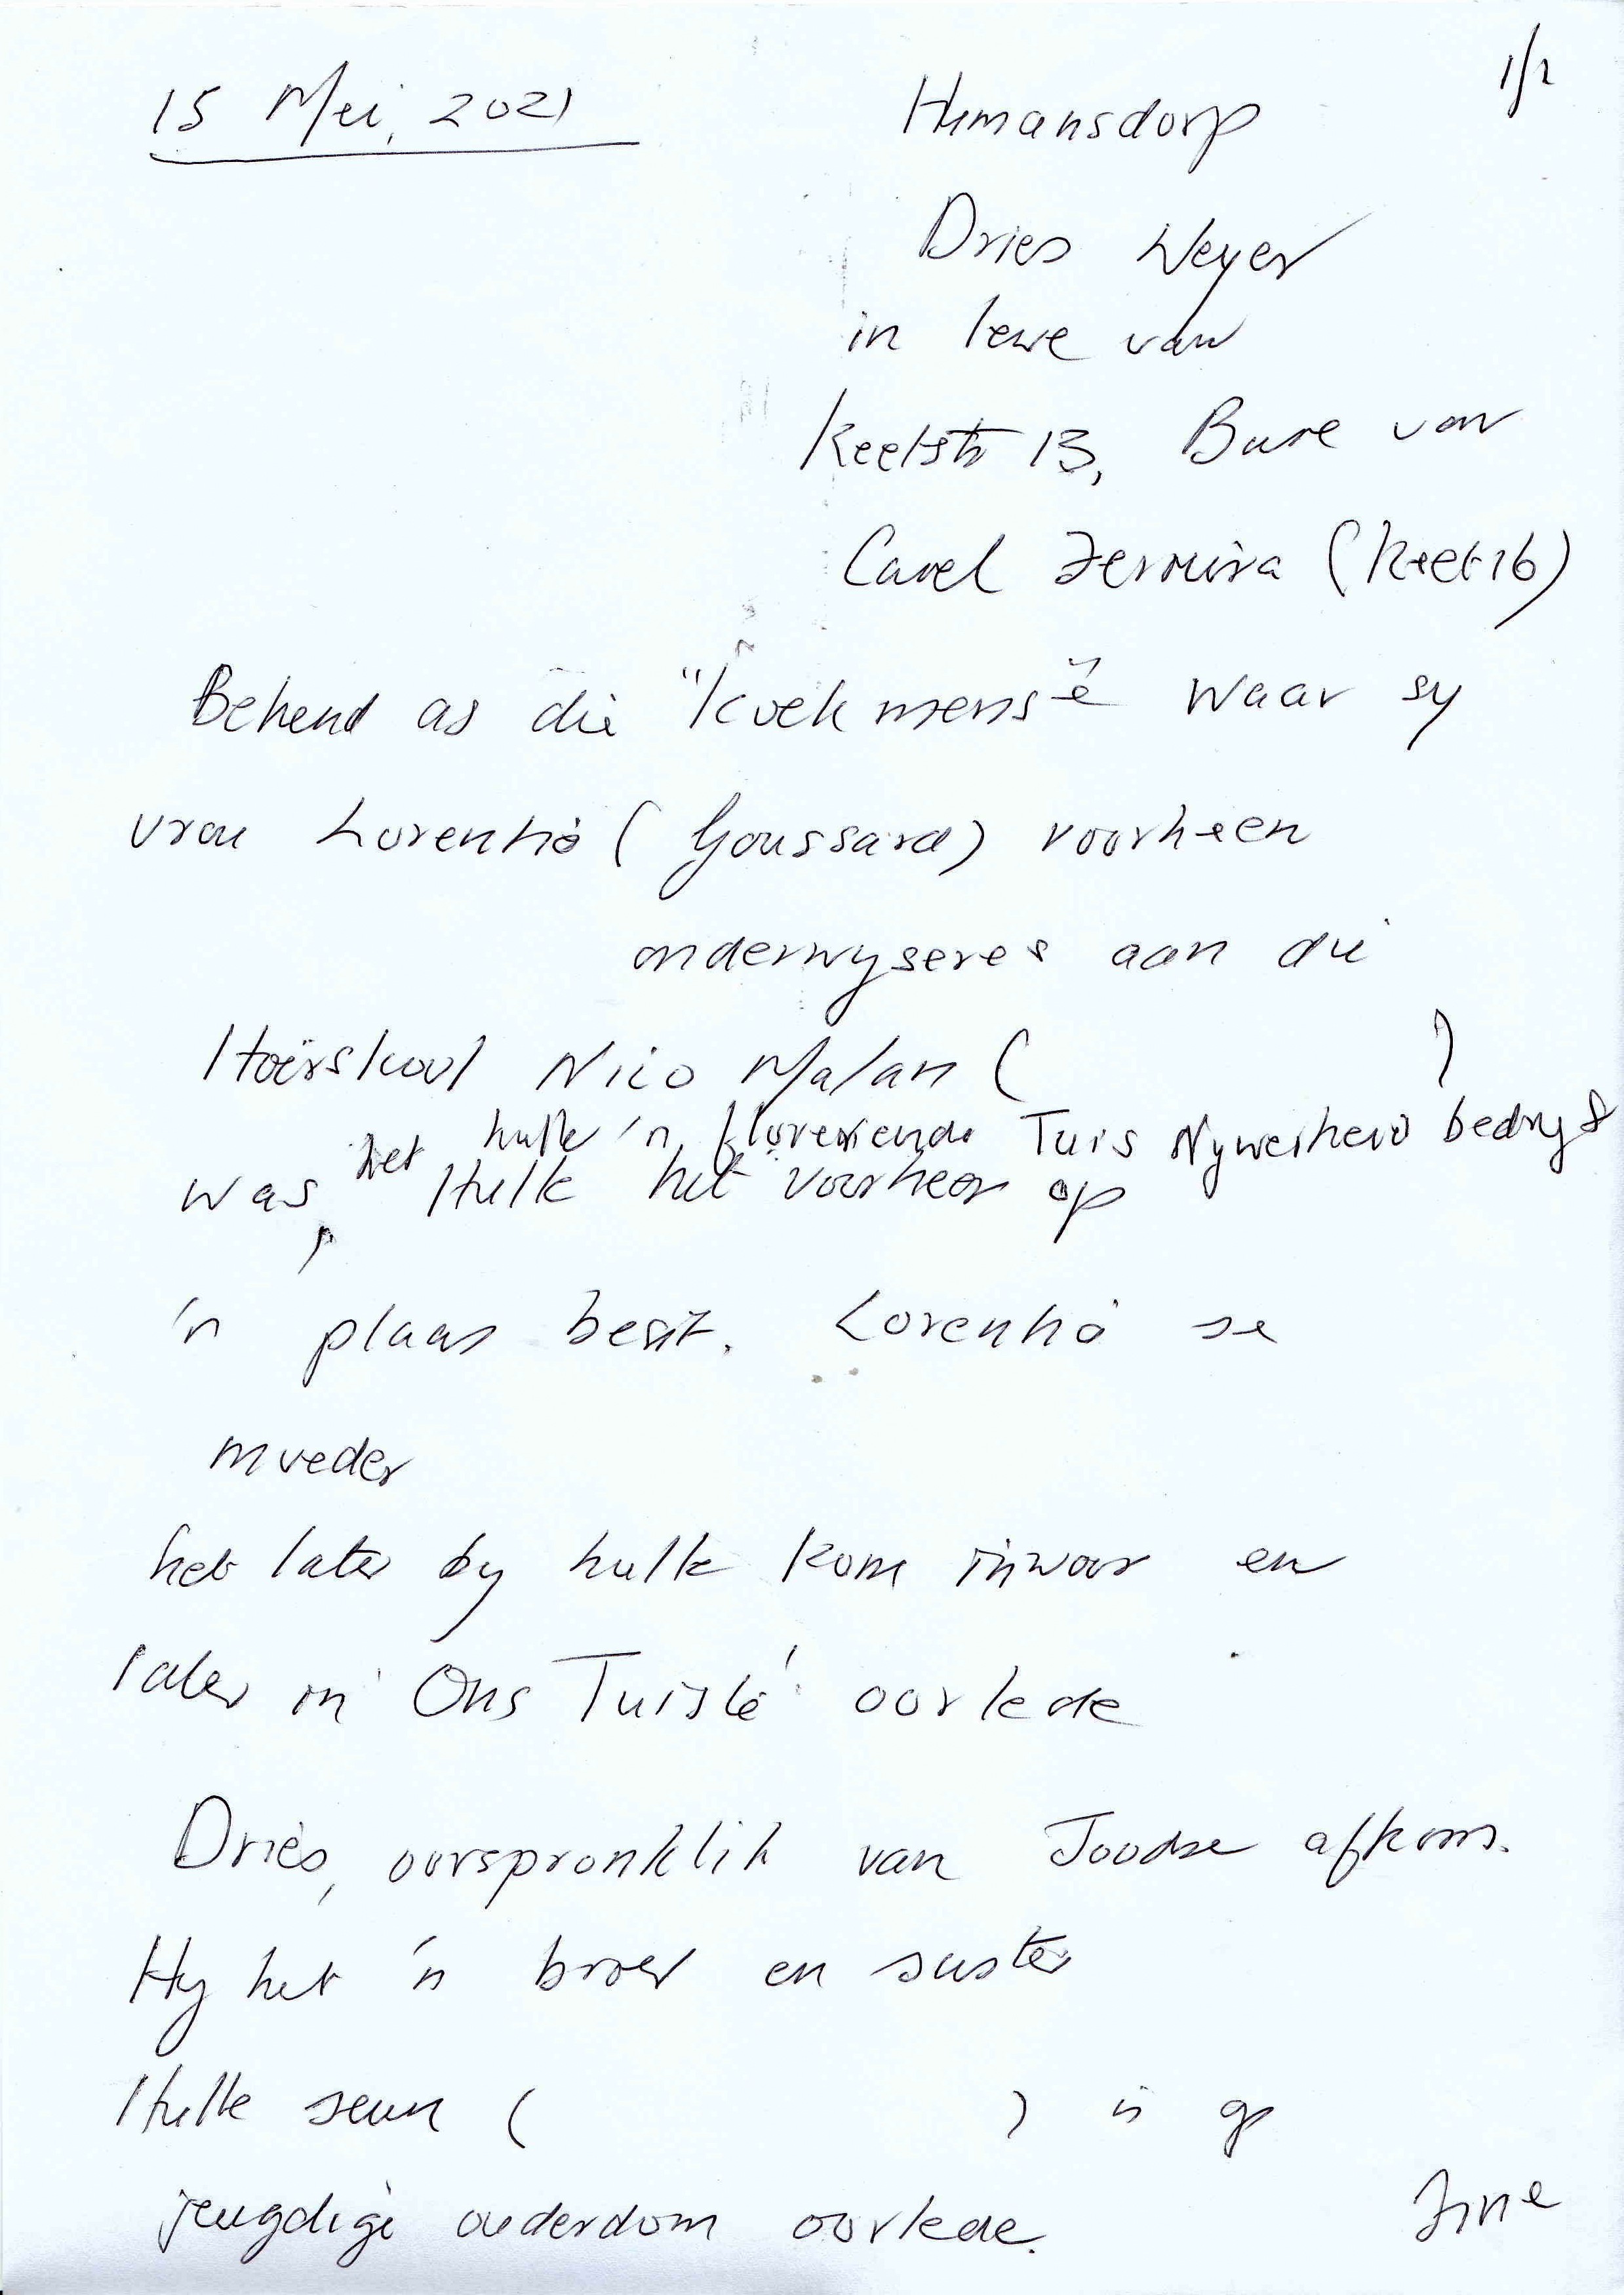 1/2
15 Mei, 2021
Humansdorp
Dries Weyer
in lewe van
Keetstr 13, Bure van
Carel Ferreira (Keet 16)
Bekend as die "Koekmense" waar sy
vrou Lorentia (Goussard) voorheen
onderwyseres aan die
Hoërskool Nico Malan ( )
het hulle 'n florerende Tuis Nywerheid bedryf
was, Hulle het voorheen op
'n plaas besit. Lorentia se
moeder
het later by hulle kom inwoon en
later in 'Ons Tuiste' oorlede
Dries, oorspronklik van Joodse afkoms.
Hy het 'n broer en suster
Hulle seun ( ) is op
jeugdige ouderdom oorlede.